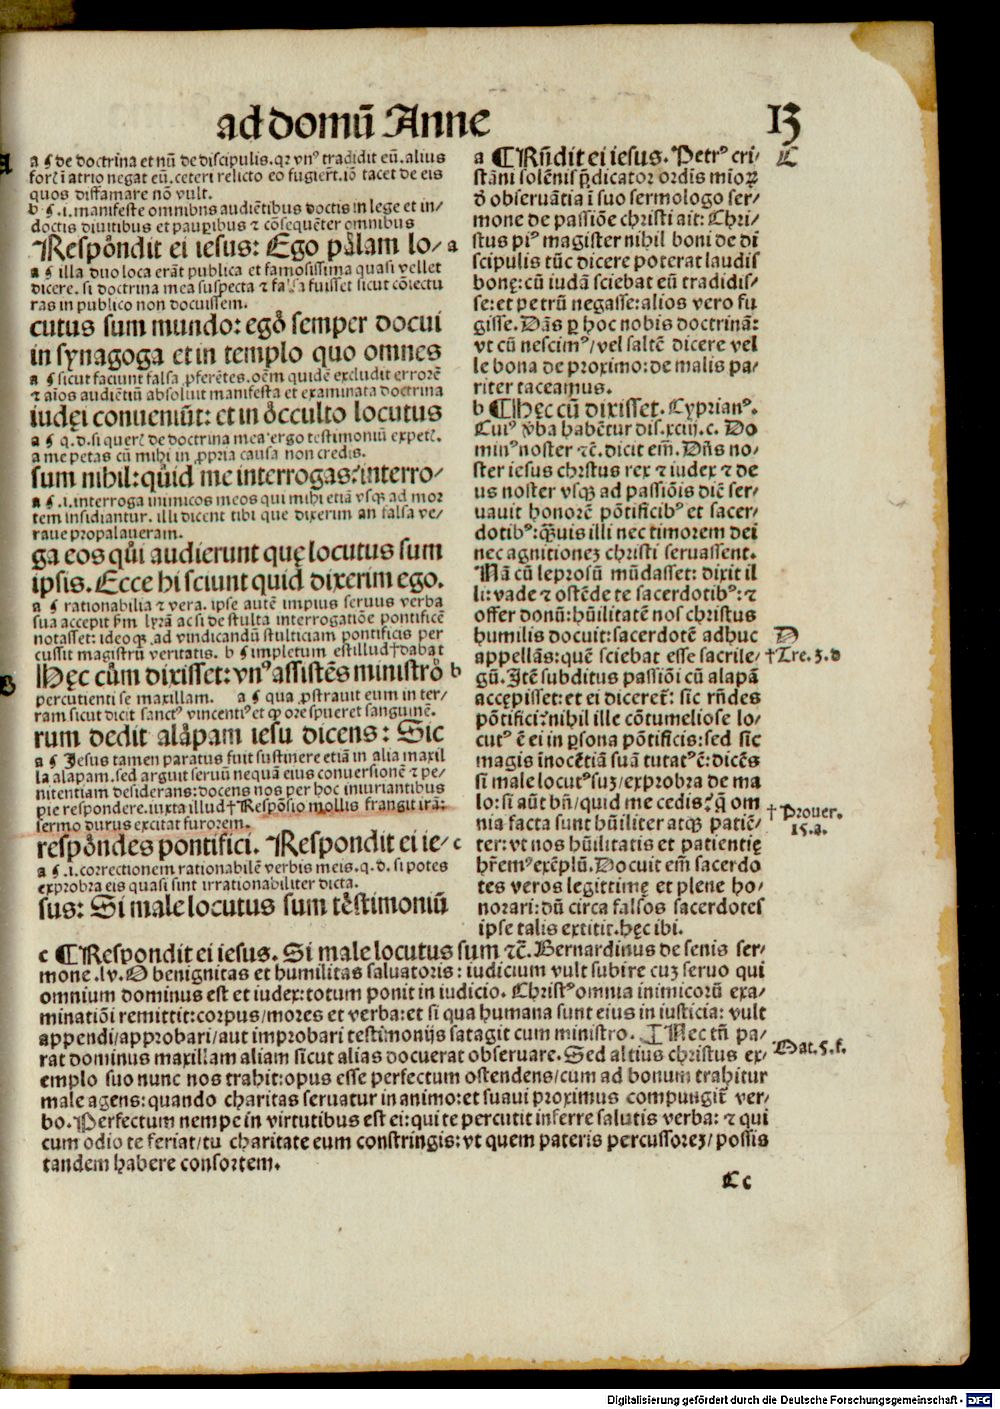 ad domū Anne
13
A
a ¶ de doctrina et nū de discipulis. qr vnꝰ tradidit eū. alius
forꝭ ī atrio negat eū. ceteri relicto eo fugierūt. iō tacet de eis
quos diffamare nō vult.
b ¶ .i. manifeste omnibns audiētibus doctis in lege et in/
doctis diuitibus et pauꝑibus ⁊ cōsequēter omnibus
Respōndit ei iesus: Ego pālam lo/ a
a ¶ illa duo loca erāt publica et famosissima quasi vellet
dicere. si doctrina mea suspecta ⁊ falsa fuisset sicut cōiectu
ras in publico non docuissem.
cutus sum mundo: ego semper docui
in synagoga et in templo quo omnes
a ¶ sicut faciunt falsa ꝓferētes. oēm quidē excludit errorē
⁊ aīos audientiū absoluit manifesta et examinata doctrina
iudęi conueniūt: et in occulto locutus
a ¶ q. d. si querꝭ de doctrina mea ergo testimoniū expetꝭ.
a me petas cū mihi in ꝓpria causa non credis.
sum nihil: quid me interrogas? interro/
a ¶ .i. interroga inimicos meos qui mihi etiā vsqꝫ ad mor
tem insidiantur. illi dicent tibi que dixerim an falsa ve/
raue propalaueram.
ga eos qui audierunt quę locutus sum
ipsis. Ecce hi sciunt quid dixerim ego.
a ¶ rationabilia ⁊ vera. ipse autē impius seruus verba
sua accepit ꝑm lrām ac si de stulta interrogatiōe pontificē
notasset: ideoqꝫ ad vindicandū stulticiam pontificis per
cussit magistrū veritatis. b ¶ impletum est illud † dabat
B
Hęc cum dixisset: vnꝰ assistēs ministro b
percutienti se maxillam. a ¶ qua ꝓstrauit eum in ter/
ram sicut dicit sanctꝰ vincentiꝰ et ꝙ ore spueret sanguinē.
rum dedit alapam iesu dicens: Sic
a ¶ Jesus tamen paratus fuit sustinere etiā in alia maxil
la alapam. sed arguit seruū nequā eius conuersionē ⁊ pe/
nitentiam desiderans: docens nos per hoc iniuriantibus
pie respondere. iuxta illud † Respōsio mollis frangit irā:
sermo durus excitat furorem.
respōndes pontifici. Respondit ei ie/ c
a ¶ .i. correctionem rationabilē verbis meis. q. d. si potes
exprobra eis quasi sint irrationabiliter dicta.
sus: Si male locutus sum testimoniū
a ¶ Rūdit ei iesus. Petrꝰ cri/
stāni solēnis p̄dicator ordīs mīoꝝ
ḋ obseruātia ī suo sermologo ser/
mone de passiōe christi ait: Chri/
stus piꝰ magister nihil boni de dī
scipulis tūc dicere poterat laudis
bonę: cū iudā sciebat eū tradidis/
se: et petrū negasse: alios vero fu
gisse. Dās ꝑ hoc nobis doctrinā:
vt cū nescimꝰ/ vel saltē dicere vel
le bona de proximo: de malis pa/
riter taceamus.
b ¶ Hęc cū dixisset. Cyprianꝰ.
Cuiꝰ v̄ba habētur dis. xciij. c. Do
minꝰ noster ⁊c̄. dicit em̄. Dn̄s no/
ster iesus chrstus rex ⁊ iudex ⁊ de
us noster vsqꝫ ad passiōis diē ser/
uauit honorē pōtificibꝰ et sacer/
dotibꝰ: qꝫuis illi nec timorem dei
nec agnitionez christi seruassent.
Nā cū leprosū mūdasset: dixit il
li: vade ⁊ ostēde te sacerdotibꝰ: ⁊
offer donū: hūilitatē nos christus
humilis docuit: sacerdotē adhuc
appellās: quē sciebat esse sacrile/
gū. Jtē subditus passiōi cū alapā
accępisset: et ei diceretꝭ: sic rn̄des
pōtifici? nihil ille cōtumeliose lo/
cutꝰ ē ei in ꝑsona pōtificis: sed sic
magis inocētiā suā tutatꝰ ē: dicēs
si male locutꝰ suꝫ/ exprobra de ma
lo: si aūt bn̄/ quid me cedis? q̄ om
nia facta sunt hūiliter atqꝫ patiē/
ter: vt nos hūilitatis et patientię
hr̄emꝰ exēplū. Docuit em̄ sacerdo
tes veros legittimę et plene ho/
norari: dū circa falsos sacerdotes
ipse talis extitit. hęc ibi.
C
D
† Tre. 3. d
† Prouer.
15. a.
c ¶ Respondit ei iesus. Si male locutus sum ⁊c̄. Bernardinus de senis ser/
mone. lv. O benignitas et humilitas saluatoris: iudicium vult subire cuꝫ seruo qui
omnium dominus est et iudex: totum ponit in iudicio. Christꝰ omnia inimicorū exa/
minatiōi remittit: corpus/ mores et verba: et si qua humana sunt eius in iusticia: vult
appendi/ approbari/ aut improbari testimonijs satagit cum ministro. ¶ Nec tn̄ pa/
rat dominus maxillam aliam sicut alias docuerat obseruare. Sed altius christus ex/
emplo suo nunc nos trahit: opus esse perfectum ostendens/ cum ad bonum trahitur
male agens: quando charitas seruatur in animo: et suaui proximus compungit̄ ver/
bo. Perfectum nempe in virtutibus est ei: qui te percutit inferre salutis verba: ⁊ qui
cum odio te feriat/ tu charitate eum constringis: vt quem pateris percussoreꝫ/ possis
tandem habere consortem.
Mat. 5. f.
Cc
Digitalisierung gefördert durch die Deutsche Forschungsgemeinschaft - DFG